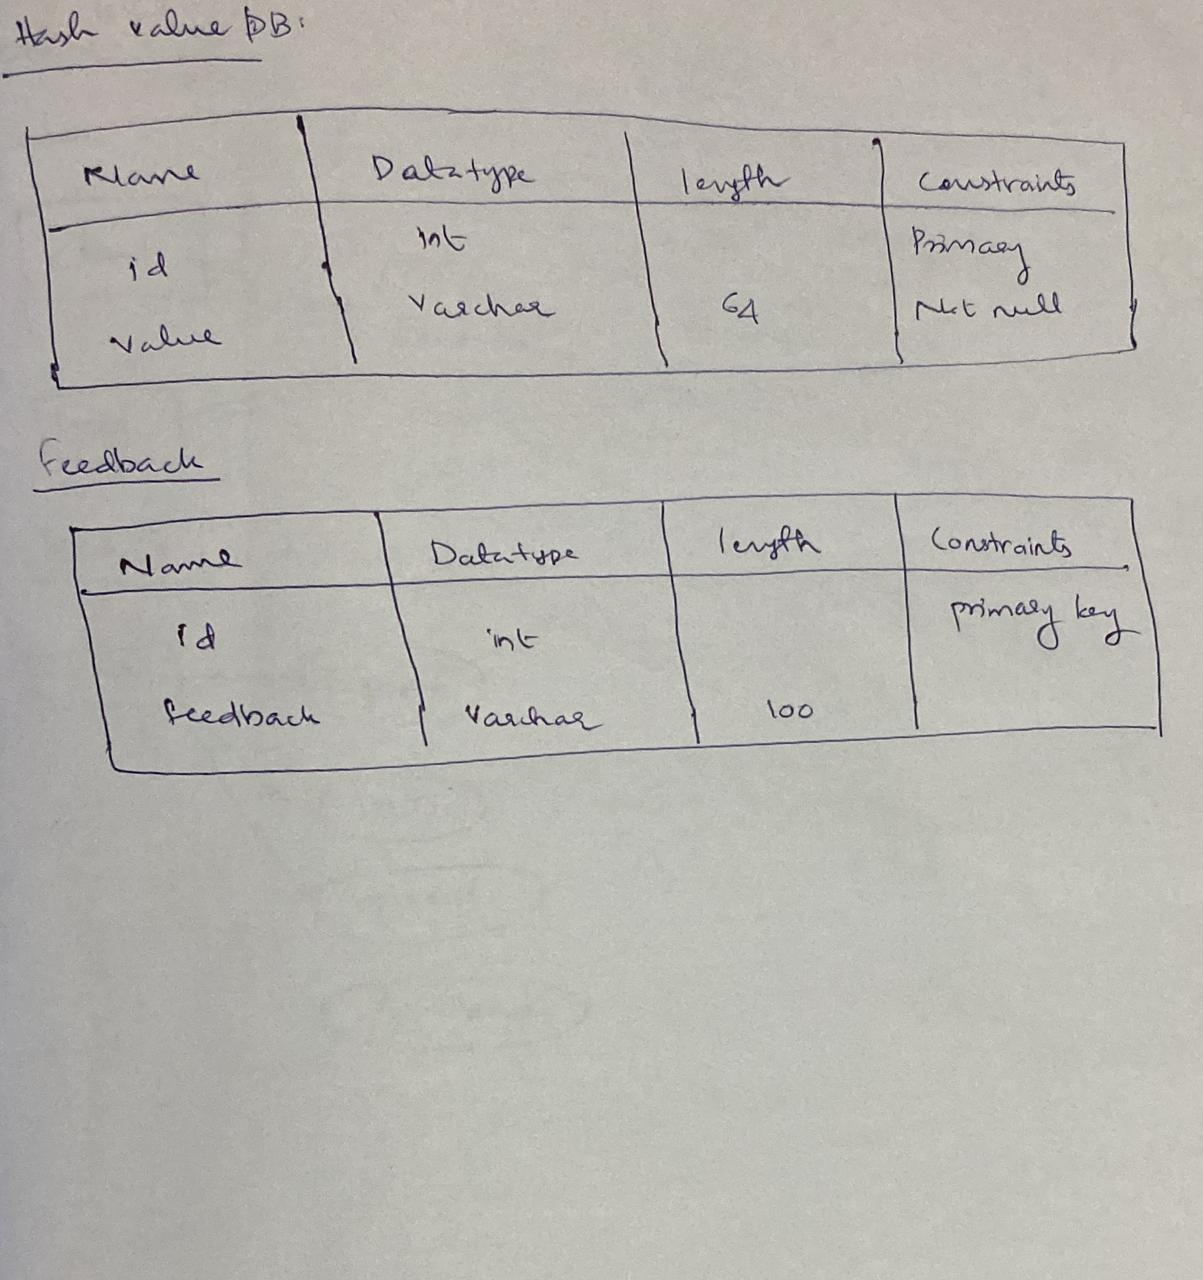 Hash value DB:
Name Datatype length Constraints
id int Primary
value Varchar 64 Not null
Feedback
Name Datatype length Constraints
id int primary key
feedback Varchar 100